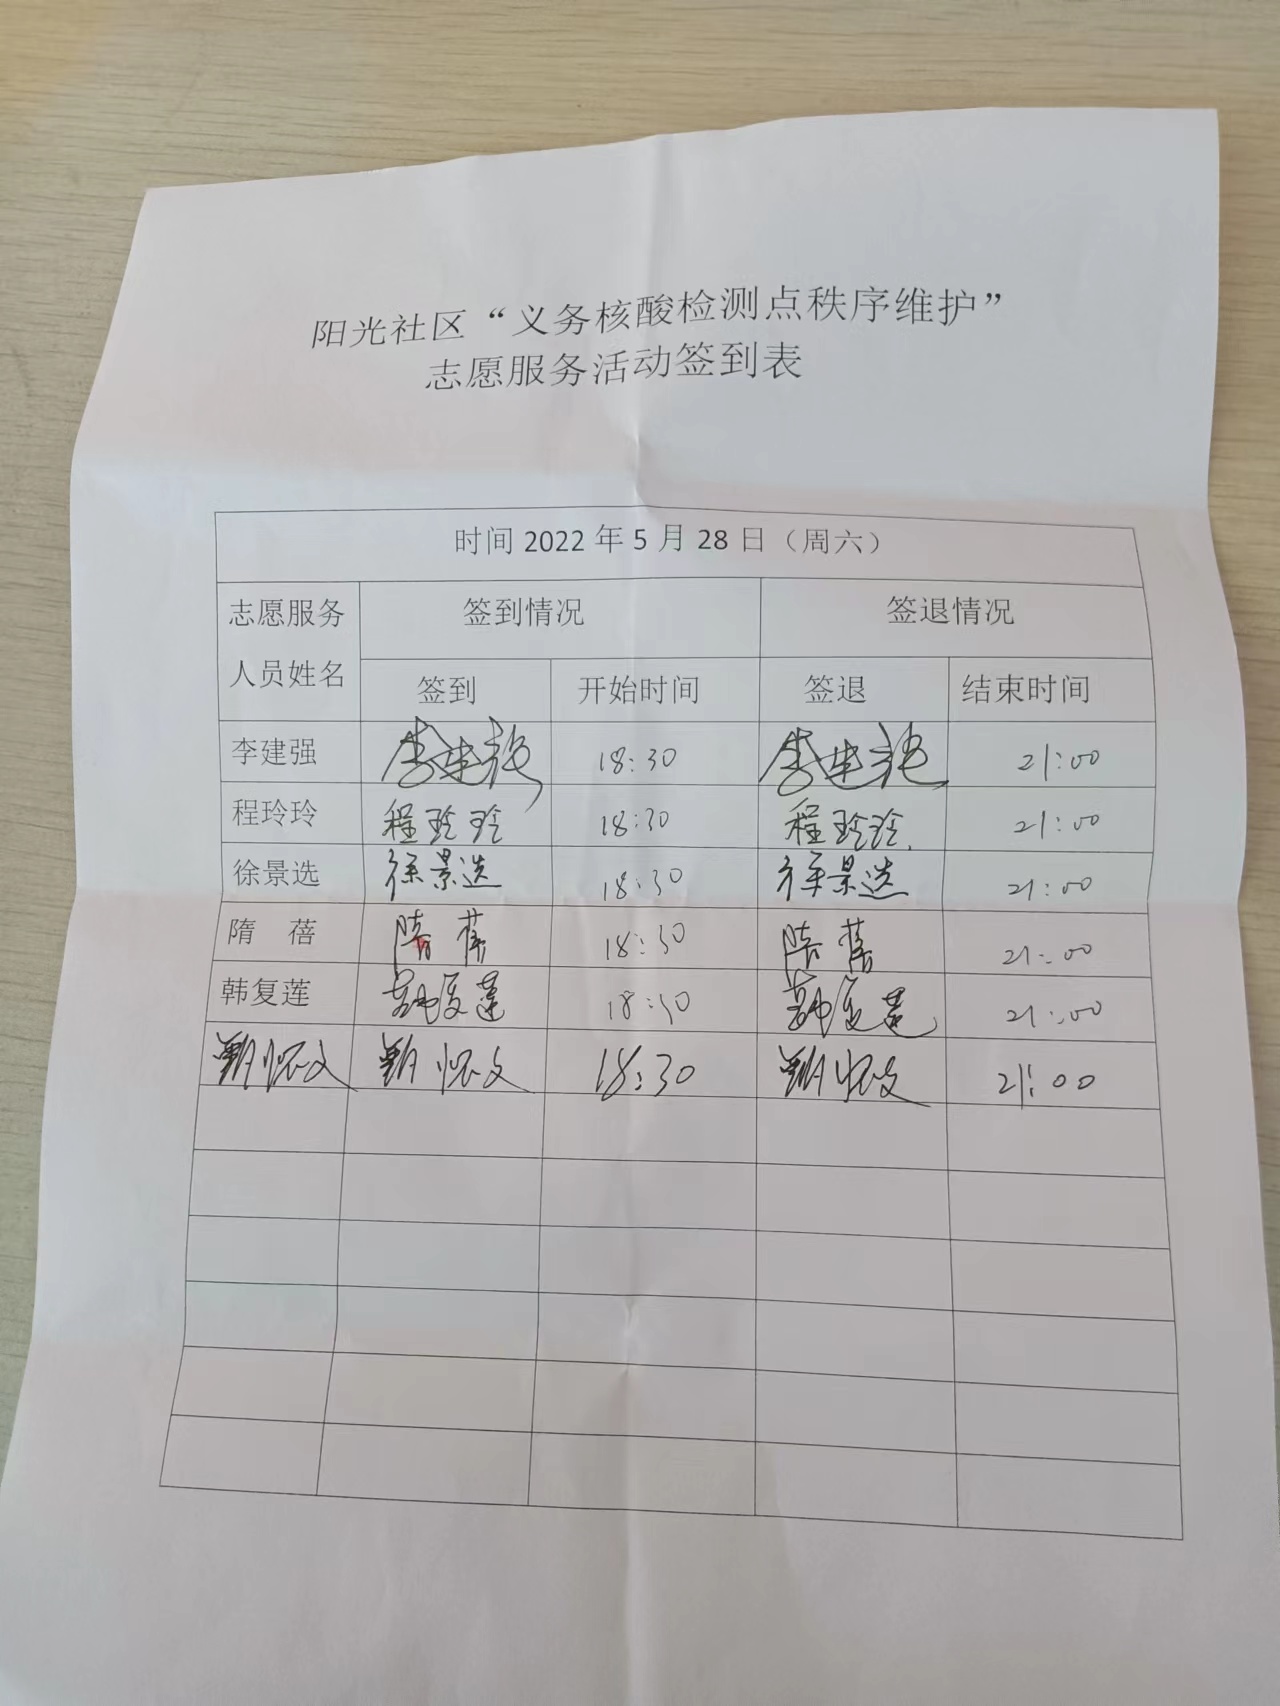 阳光社区“义务核酸检测点秩序维护”
志愿服务活动签到表
时间 2022 年 5 月 28 日（周六）
志愿服务人员姓名 签到情况 签退情况
签到 开始时间 签退 结束时间
李建强 李建强 18:30 李建强 21:00
程玲玲 程玲玲 18:30 程玲玲 21:00
徐景选 徐景选 18:30 徐景选 21:00
隋 蓓 隋蓓 18:30 隋蓓 21:00
韩复莲 韩复莲 18:30 韩复莲 21:00
甄怀文 甄怀文 18:30 甄怀文 21:00